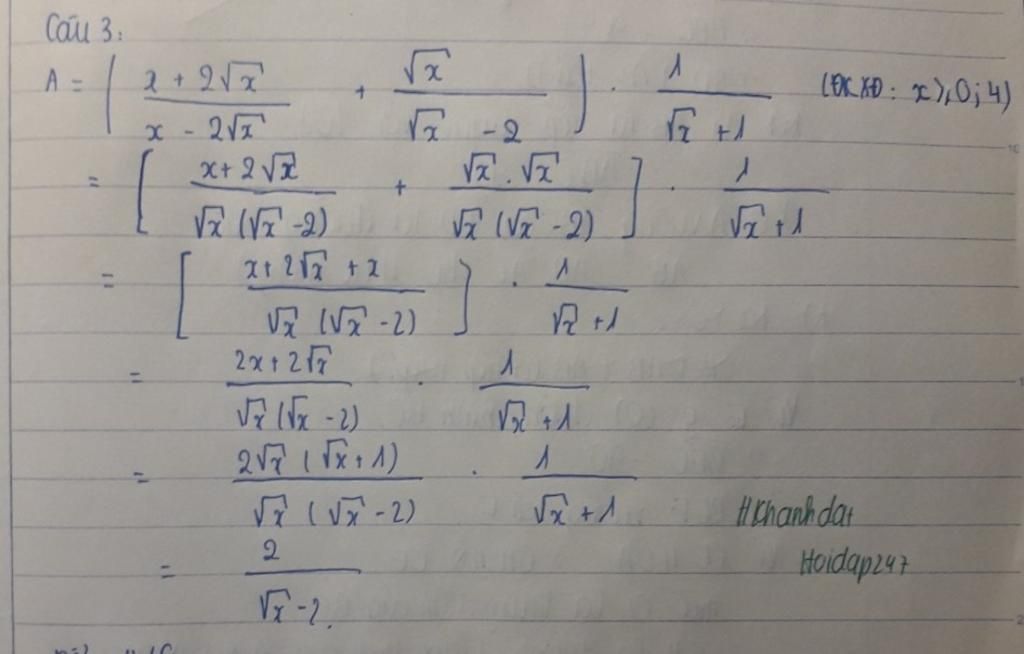 Câu 3:
A = ( (x + 2√x)/(x - 2√x) + √x/(√x - 2) ) · 1/(√x + 1) (ĐKXĐ: x ⩾ 0; 4)
= [ (x + 2√x)/(√x (√x - 2)) + (√x . √x)/(√x (√x - 2)) ] · 1/(√x + 1)
= [ (x + 2√x + x)/(√x (√x - 2)) ] · 1/(√x + 1)
= (2x + 2√x)/(√x (√x - 2)) · 1/(√x + 1)
= (2√x (√x + 1))/(√x (√x - 2)) · 1/(√x + 1)
#Khanhdat
= 2/(√x - 2).
Hoidap247